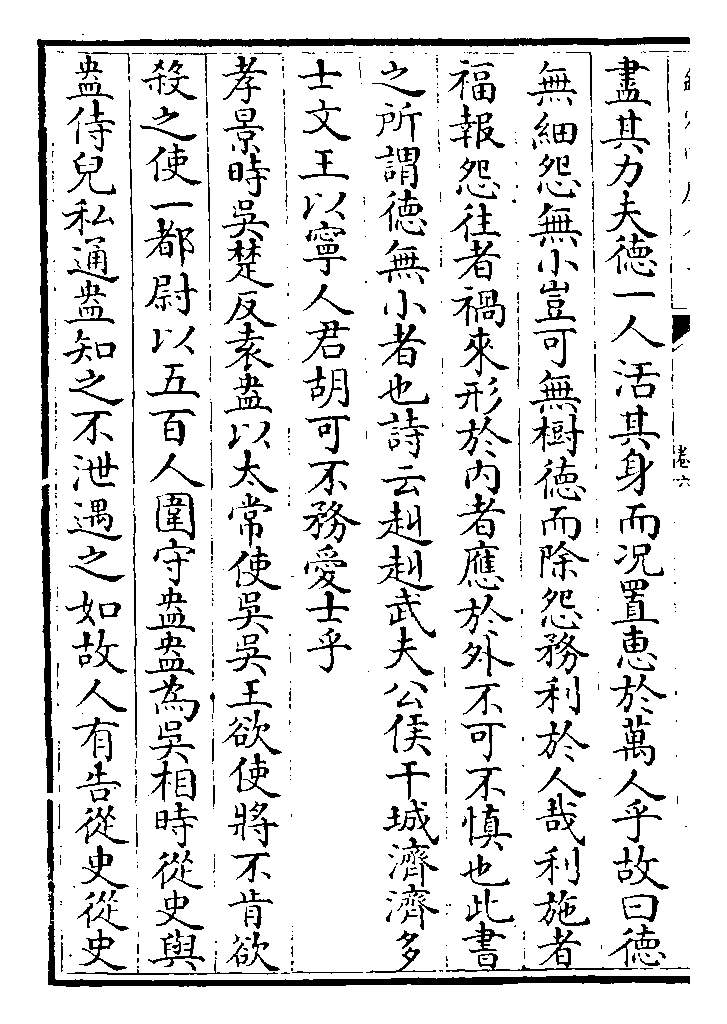 卷六
盡其力夫德一人活其身而况置恵於萬人乎故曰德
無細怨無小豈可無樹德而除怨務利於人哉利施者
福報怨往者禍來形於内者應於外不可不慎也此書
之所謂德無小者也詩云赳赳武夫公侯干城濟濟多
士文王以寧人君胡可不務愛士乎
孝景時吳楚反袁盎以太常使吳吳王欲使將不肯欲
殺之使一都尉以五百人圍守盎盎為吳相時從史與
盎侍兒私通盎知之不泄遇之如故人有告從史從史